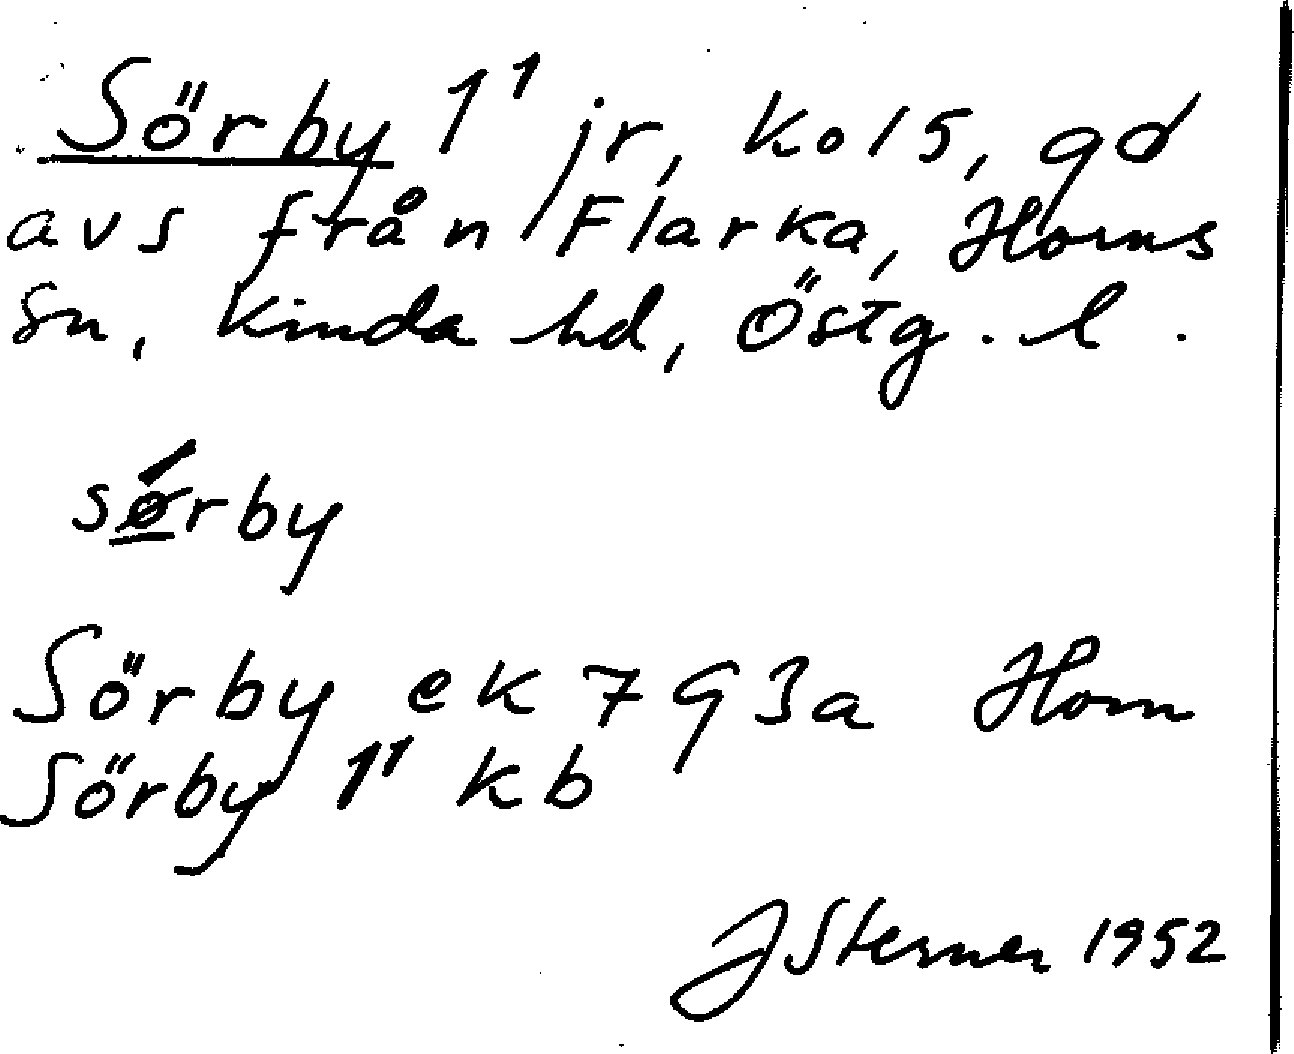 Sörby 1¹ jr, Ko15, gd
avs från Flarka, Horns
sn, Kinda hd, Östg. l.
sǿrby
Sörby ek 793a Horn
Sörby 1¹ kb
J Sterner 1952